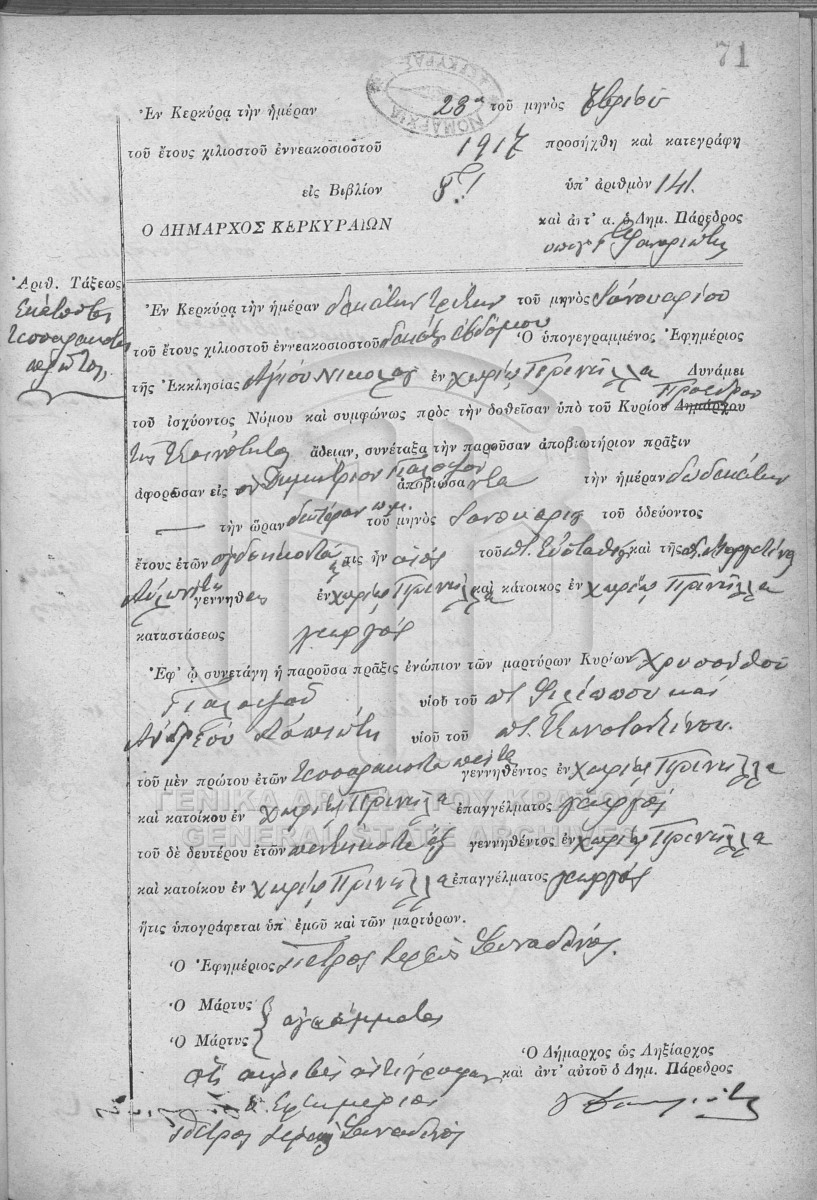 71
ΝΟΜΑΡΧΙΑ ΚΕΡΚΥΡΑΣ
Ἐν Κερκύρᾳ τὴν ἡμέραν 28ῃ τοῦ μηνὸς
τοῦ ἔτους χιλιοστοῦ ἐννεακοσιοστοῦ 1917 προσήχθη καὶ κατεγράφη
εἰς Βιβλίον ὑπ' ἀριθμὸν 141.
Ο ΔΗΜΑΡΧΟΣ ΚΕΡΚΥΡΑΙΩΝ
καὶ ἀντ' α. ὁ Δημ. Πάρεδρος
Ἀριθ. Τάξεως
Ἑκατοστὴ
τεσσαρακοστὴ
πρώτη
Ἐν Κερκύρᾳ τὴν ἡμέραν δεκάτην τρίτην τοῦ μηνὸς Ἰανουαρίου
τοῦ ἔτους χιλιοστοῦ ἐννεακοσιοστοῦ δεκάτου ἑβδόμου Ὁ ὑπογεγραμμένος Ἐφημέριος
τῆς Ἐκκλησίας Ἁγίου Νικολάου ἐν χωρίῳ Πρινύλλα Δυνάμει
τοῦ ἰσχύοντος Νόμου καὶ συμφώνως πρὸς τὴν δοθεῖσαν ὑπὸ τοῦ Κυρίου Δημάρχου Προέδρου
τῆς Κοινότητος ἄδειαν, συνέταξα τὴν παροῦσαν ἀποβιωτήριον πρᾶξιν
ἀφορῶσαν εἰς τὸν Δημήτριον ἀποβιώσαντα τὴν ἡμέραν δωδεκάτην
τὴν ὥραν δευτέραν π.μ. τοῦ μηνὸς Ἰανουαρίου τοῦ ὁδεύοντος
ἔτους ἐτῶν ὀγδοήκοντα ὅςτις ἦν υἱὸς τοῦ ποτ. Εὐσταθίου καὶ τῆς ποτ.
γεννηθεὶς ἐν χωρίῳ Πρινύλλα καὶ κάτοικος ἐν χωρίῳ Πρινύλλα
καταστάσεως γεωργός
Ἐφ' ᾧ συνετάγη ἡ παροῦσα πρᾶξις ἐνώπιον τῶν μαρτύρων Κυρίων Χρυσάνθου
υἱοῦ τοῦ ποτ. Φιλίππου καὶ
Ἀνδρέου υἱοῦ τοῦ ποτ. Κωνσταντίνου.
τοῦ μὲν πρώτου ἐτῶν τεσσαράκοντα πέντε γεννηθέντος ἐν χωρίῳ Πρινύλλα
καὶ κατοίκου ἐν χωρίῳ Πρινύλλα ἐπαγγέλματος γεωργός
τοῦ δὲ δευτέρου ἐτῶν πεντήκοντα ἕξ γεννηθέντος ἐν χωρίῳ Πρινύλλα
καὶ κατοίκου ἐν χωρίῳ Πρινύλλα ἐπαγγέλματος γεωργός
ἥτις ὑπογράφεται ὑπ' ἐμοῦ καὶ τῶν μαρτύρων.
Ὁ Ἐφημέριος Πέτρος Ἱερεὺς Συναδινός.
Ὁ Μάρτυς
ἀγράμματοι
Ὁ Μάρτυς
Ὅτι ἀκριβὲς ἀντίγραφον
Ὁ Ἐφημέριος
Πέτρος Ἱερεὺς Συναδινός
Ὁ Δήμαρχος ὡς Ληξίαρχος
καὶ ἀντ' αὐτοῦ ὁ Δημ. Πάρεδρος
ΓΕΝΙΚΑ ΑΡΧΕΙΑ ΤΟΥ ΚΡΑΤΟΥΣ
GENERAL STATE ARCHIVES